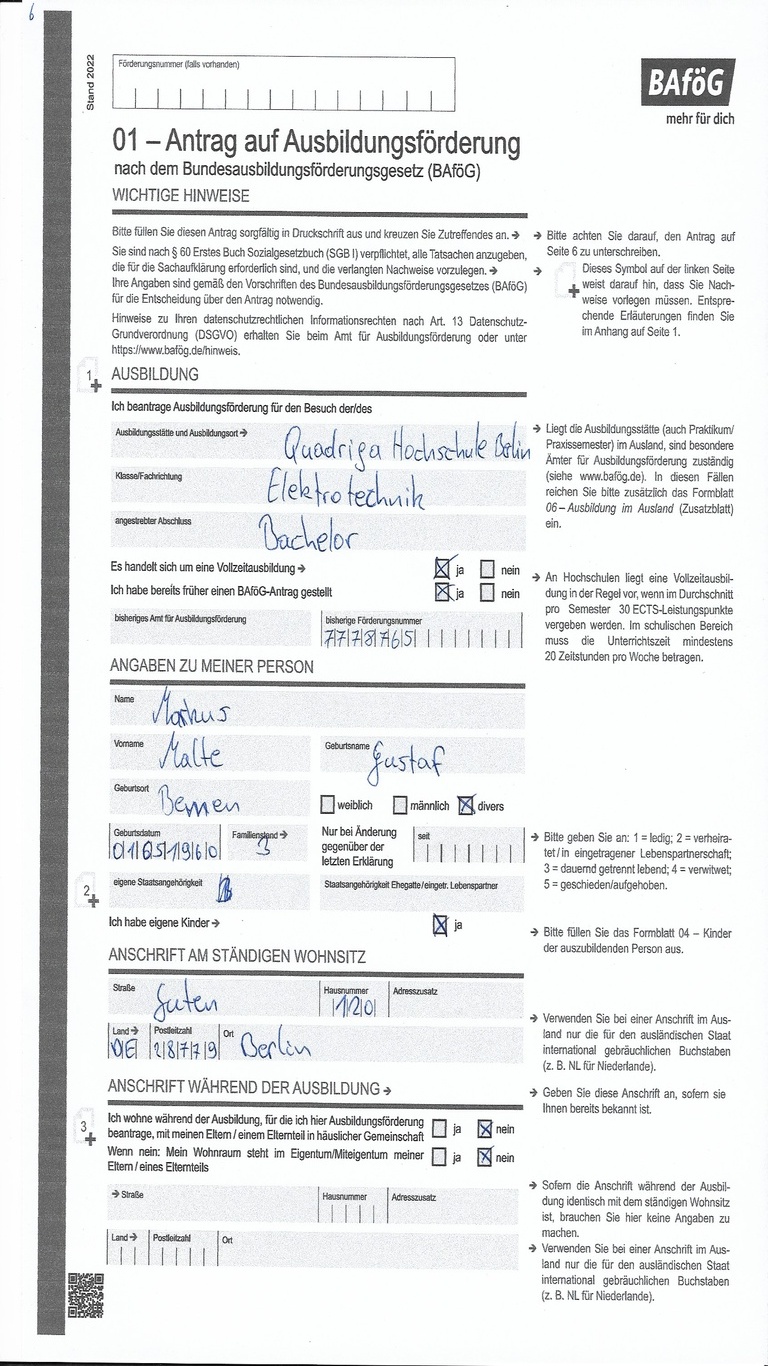 6
Stand 2022
Förderungsnummer (falls vorhanden)
BAföG
mehr für dich
01 – Antrag auf Ausbildungsförderung
nach dem Bundesausbildungsförderungsgesetz (BAföG)
WICHTIGE HINWEISE
Bitte füllen Sie diesen Antrag sorgfältig in Druckschrift aus und kreuzen Sie Zutreffendes an. →
Sie sind nach § 60 Erstes Buch Sozialgesetzbuch (SGB I) verpflichtet, alle Tatsachen anzugeben,
die für die Sachaufklärung erforderlich sind, und die verlangten Nachweise vorzulegen. →
Ihre Angaben sind gemäß den Vorschriften des Bundesausbildungsförderungsgesetzes (BAföG)
für die Entscheidung über den Antrag notwendig.
Hinweise zu Ihren datenschutzrechtlichen Informationsrechten nach Art. 13 Datenschutz-
Grundverordnung (DSGVO) erhalten Sie beim Amt für Ausbildungsförderung oder unter
https://www.bafög.de/hinweis.
→ Bitte achten Sie darauf, den Antrag auf
Seite 6 zu unterschreiben.
→ Dieses Symbol auf der linken Seite
weist darauf hin, dass Sie Nach-
weise vorlegen müssen. Entspre-
chende Erläuterungen finden Sie
im Anhang auf Seite 1.
1 AUSBILDUNG
Ich beantrage Ausbildungsförderung für den Besuch der/des
Ausbildungsstätte und Ausbildungsort → Quadriga Hochschule Berlin
Klasse/Fachrichtung Elektrotechnik
angestrebter Abschluss Bachelor
Es handelt sich um eine Vollzeitausbildung → ja nein
Ich habe bereits früher einen BAföG-Antrag gestellt ja nein
bisheriges Amt für Ausbildungsförderung
bisherige Förderungsnummer
7778765
→ Liegt die Ausbildungsstätte (auch Praktikum/
Praxissemester) im Ausland, sind besondere
Ämter für Ausbildungsförderung zuständig
(siehe www.bafög.de). In diesen Fällen
reichen Sie bitte zusätzlich das Formblatt
06 – Ausbildung im Ausland (Zusatzblatt)
ein.
→ An Hochschulen liegt eine Vollzeitausbil-
dung in der Regel vor, wenn im Durchschnitt
pro Semester 30 ECTS-Leistungspunkte
vergeben werden. Im schulischen Bereich
muss die Unterrichtszeit mindestens
20 Zeitstunden pro Woche betragen.
ANGABEN ZU MEINER PERSON
Name Markus
Vorname Malte
Geburtsname Gustaf
Geburtsort Bermen
weiblich männlich divers
Geburtsdatum 01051960
Familienstand → 3
Nur bei Änderung
gegenüber der
letzten Erklärung
seit
2 eigene Staatsangehörigkeit
Staatsangehörigkeit Ehegatte/eingetr. Lebenspartner
Ich habe eigene Kinder → ja
→ Bitte geben Sie an: 1 = ledig; 2 = verheira-
tet / in eingetragener Lebenspartnerschaft;
3 = dauernd getrennt lebend; 4 = verwitwet;
5 = geschieden/aufgehoben.
→ Bitte füllen Sie das Formblatt 04 – Kinder
der auszubildenden Person aus.
ANSCHRIFT AM STÄNDIGEN WOHNSITZ
Straße Guten
Hausnummer 120
Adresszusatz
Land → DE
Postleitzahl 28779
Ort Berlin
→ Verwenden Sie bei einer Anschrift im Aus-
land nur die für den ausländischen Staat
international gebräuchlichen Buchstaben
(z. B. NL für Niederlande).
ANSCHRIFT WÄHREND DER AUSBILDUNG →
→ Geben Sie diese Anschrift an, sofern sie
Ihnen bereits bekannt ist.
3 Ich wohne während der Ausbildung, für die ich hier Ausbildungsförderung
beantrage, mit meinen Eltern / einem Elternteil in häuslicher Gemeinschaft ja nein
Wenn nein: Mein Wohnraum steht im Eigentum/Miteigentum meiner
Eltern / eines Elternteils ja nein
→ Straße
Hausnummer
Adresszusatz
Land →
Postleitzahl
Ort
→ Sofern die Anschrift während der Ausbil-
dung identisch mit dem ständigen Wohnsitz
ist, brauchen Sie hier keine Angaben zu
machen.
→ Verwenden Sie bei einer Anschrift im Aus-
land nur die für den ausländischen Staat
international gebräuchlichen Buchstaben
(z. B. NL für Niederlande).